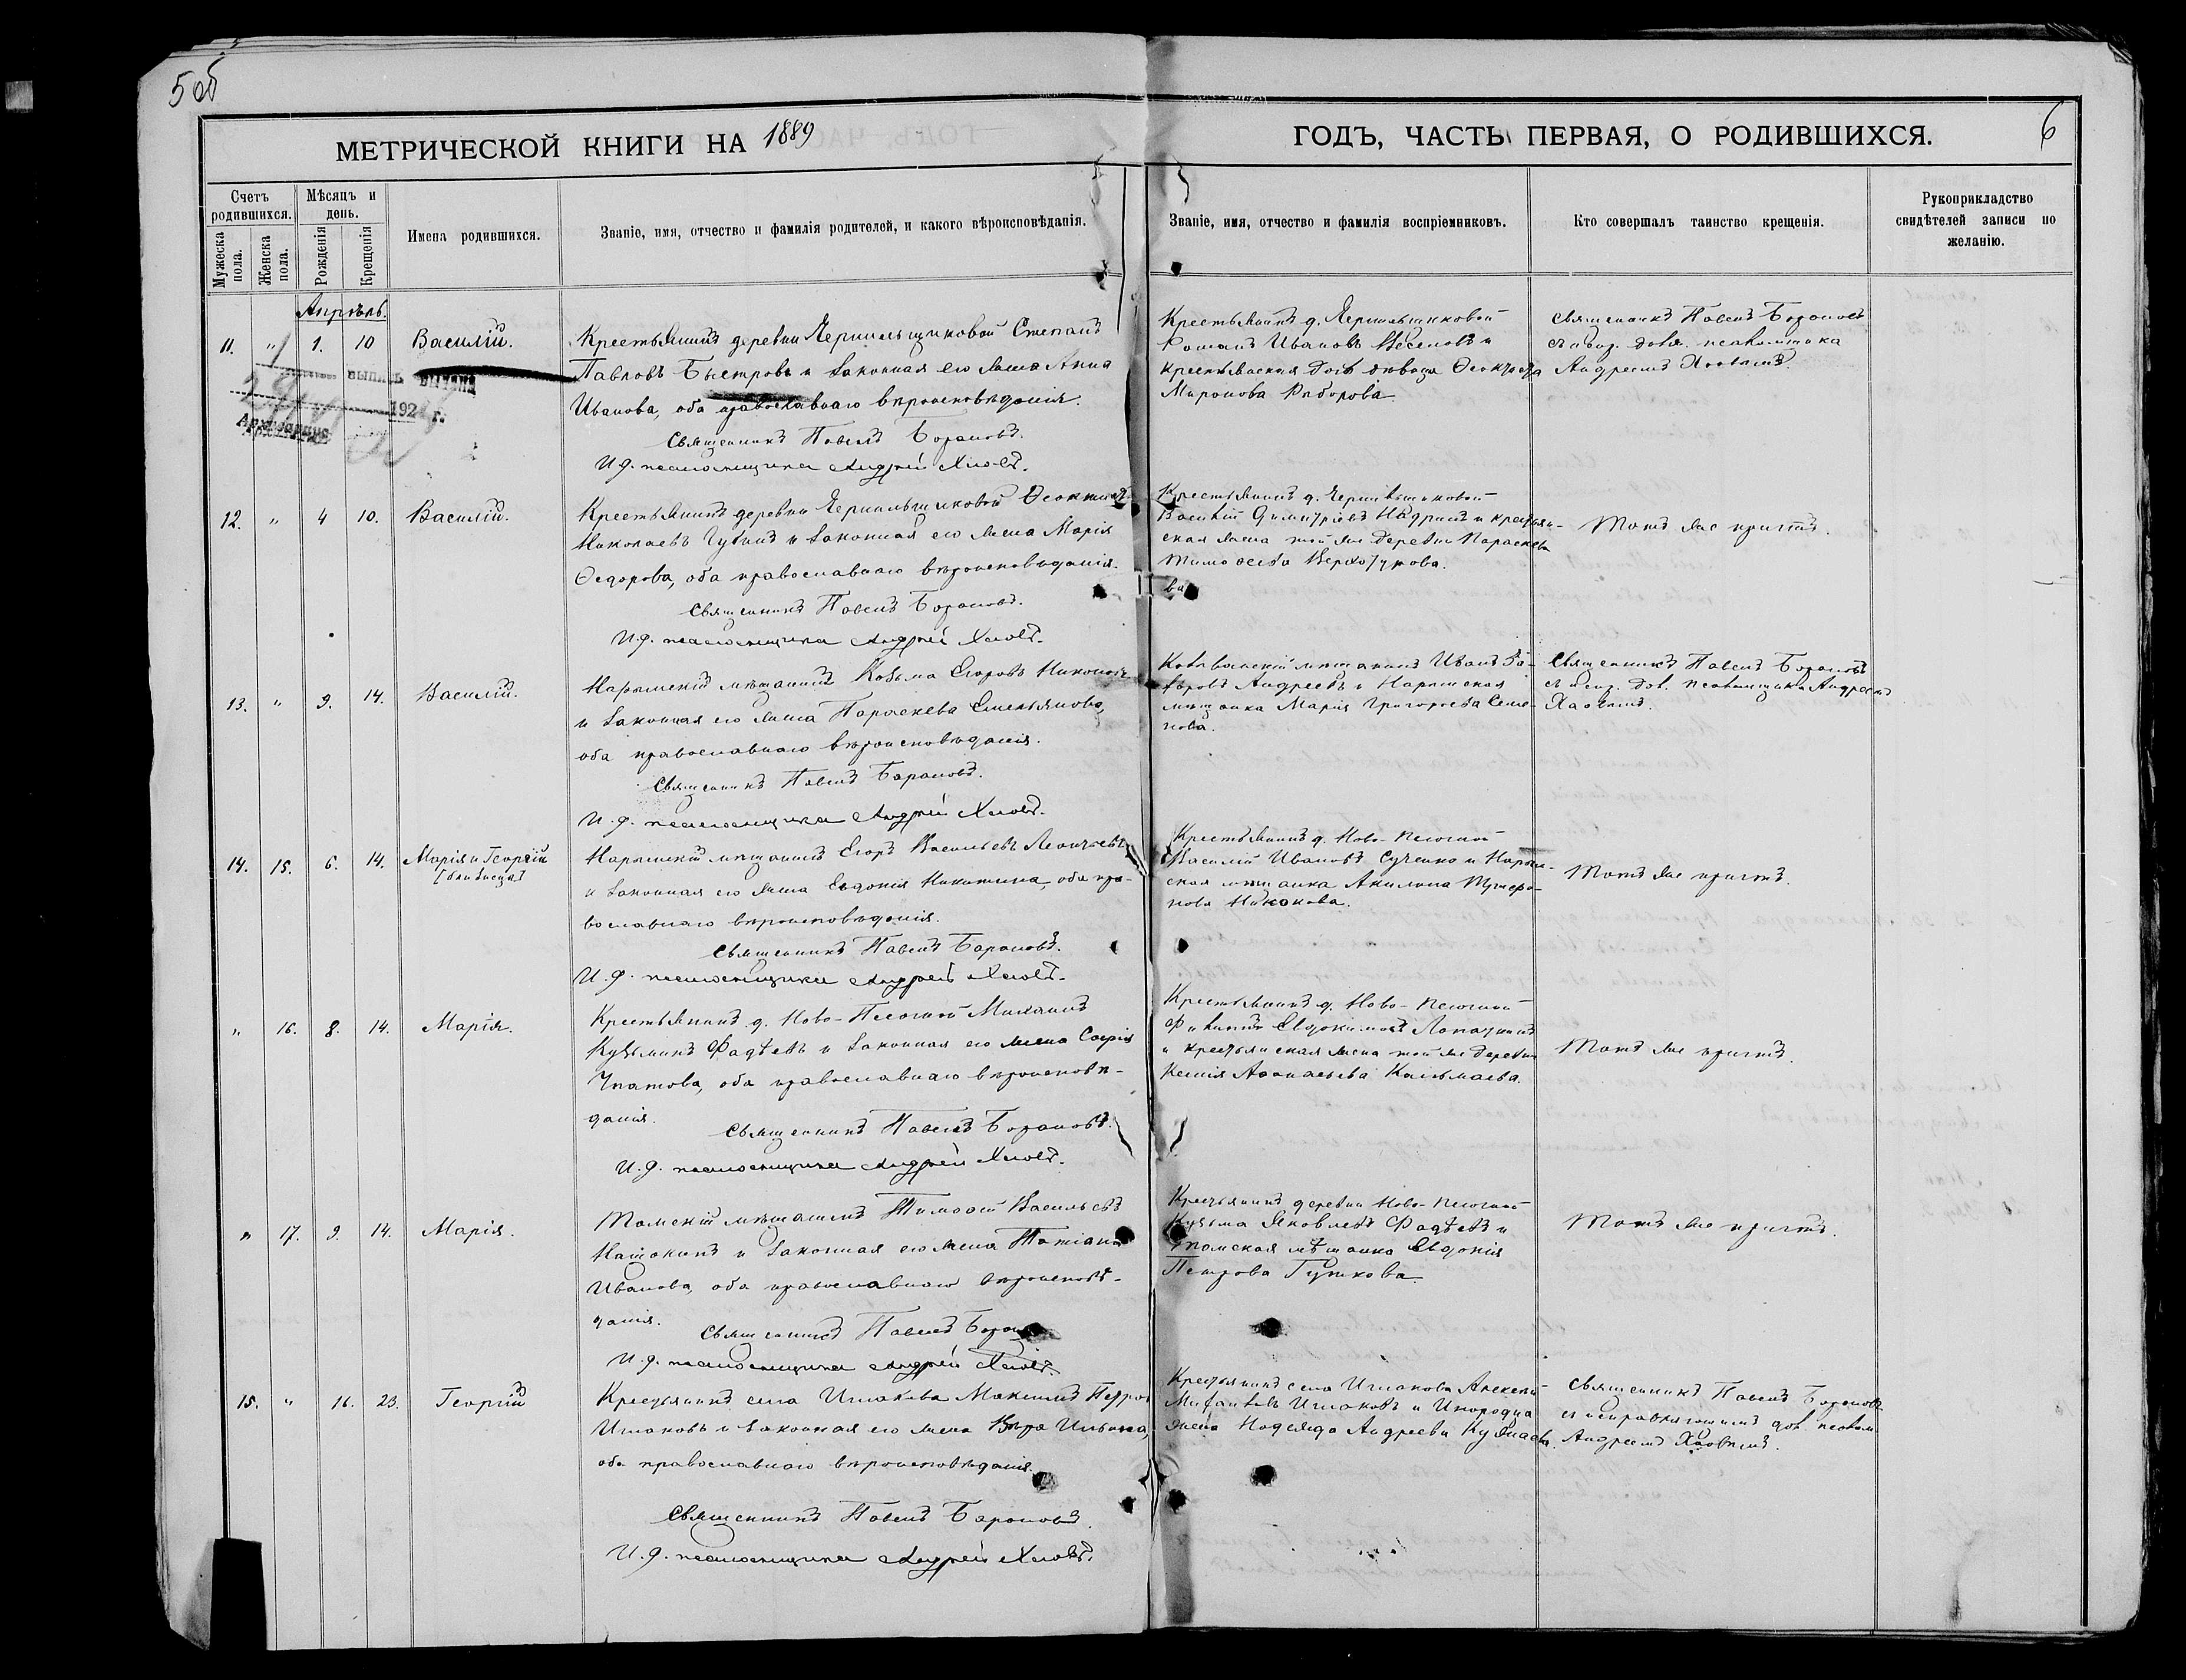 5 об
6
МЕТРИЧЕСКОЙ КНИГИ НА 1889
ГОДЪ, ЧАСТЬ ПЕРВАЯ, О РОДИВШИХСЯ.
Счетъ родившихся.
Мужеска пола.
Женска пола.
Мѣсяцъ и день.
Рожденія
Крещенія
Имена родившихся.
Званіе, имя, отчество и фамилія родителей, и какого вѣроисповѣданія.
Званіе, имя, отчество и фамилія воспріемниковъ.
Кто совершалъ таинство крещенія.
Рукоприкладство свидѣтелей записи по желанію.
Апрѣль.
11. " 1. 10 Василій.
выпись выдана
192 г.
Архиваріус
Крестьянинъ деревни Чернильщиковой Степанъ
Павловъ Быстровъ и законная его жена Анна
Иванова, оба православнаго вѣроисповѣданія.
Священникъ Павелъ Барановъ.
И. д. псаломщика Андрей
Крестьянинъ д. Чернильщиковой
Романъ Ивановъ и
крестьянская дочь дѣвица
Миронова
Священникъ Павелъ Барановъ
псаломщика
Андреемъ
12. " 4 10. Василій.
Крестьянинъ деревни Чернильщиковой
Николаевъ Губинъ и законная его жена Марія
Ѳедорова, оба православнаго вѣроисповѣданія.
Священникъ Павелъ Барановъ.
И. д. псаломщика Андрей
Крестьянинъ д. Чернильщиковой
Василій Димитріевъ и крестьян-
ская жена той же деревни Параскева
Верхотурова.
Тотъ же причтъ.
13. " 9. 14. Василій.
Нарымскій мѣщанинъ Козьма Егоровъ Никоновъ
и законная его жена Параскева Емельянова,
оба православнаго вѣроисповѣданія.
Священникъ Павелъ Барановъ.
И. д. псаломщика Андрей
мѣщанинъ Иванъ
Андреевъ и Нарымская
мѣщанка Марія Григорьева Семе-
нова.
Священникъ Павелъ Барановъ
псаломщика Андреемъ
14. 15. 6. 14. Марія и Георгій
[близнецы]
Нарымскій мѣщанинъ Егоръ Васильевъ Леонтьевъ
и законная его жена Евдокія Никитина, оба пра-
вославнаго вѣроисповѣданія.
Священникъ Павелъ Барановъ.
И. д. псаломщика Андрей
Крестьянинъ д. Ново-Песочной
Василій Ивановъ Сученко и Нарым-
ская мѣщанка Акилина
нова Никонова.
Тотъ же причтъ.
" 16. 8. 14. Марія.
Крестьянинъ д. Ново-Песочной Михаилъ
Кузьминъ Фадѣевъ и законная его жена Софія
Ипатова, оба православнаго вѣроисповѣ-
данія.
Священникъ Павелъ Барановъ.
И. д. псаломщика Андрей
Крестьянинъ д. Ново-Песочной
Филиппъ Евдокимовъ
и крестьянская жена той же деревни
Ксенія Аѳанасьева
Тотъ же причтъ.
" 17. 9. 14. Марія.
Томскій мѣщанинъ Тимоѳей Васильевъ
и законная его жена Татіана
Иванова, оба православнаго вѣроисповѣ-
данія.
Священникъ Павелъ Барановъ
И. д. псаломщика Андрей
Крестьянинъ деревни Ново-Песочной
Кузьма Яковлевъ Фадѣевъ и
томская мѣщанка Евдокія
Петрова Гуткова.
Тотъ же причтъ.
15. " 16. 23. Георгій
Крестьянинъ села Ишакова Максимъ Петровъ
Ишаковъ и законная его жена Вѣра Ильина,
оба православнаго вѣроисповѣданія.
Священникъ Павелъ Барановъ.
И. д. псаломщика Андрей
Крестьянинъ села Ишакова Алексѣй
Ишаковъ и
жена Надежда Андреева
Священникъ Павелъ Барановъ
съ исправляющимъ дол. псалом
Андреемъ